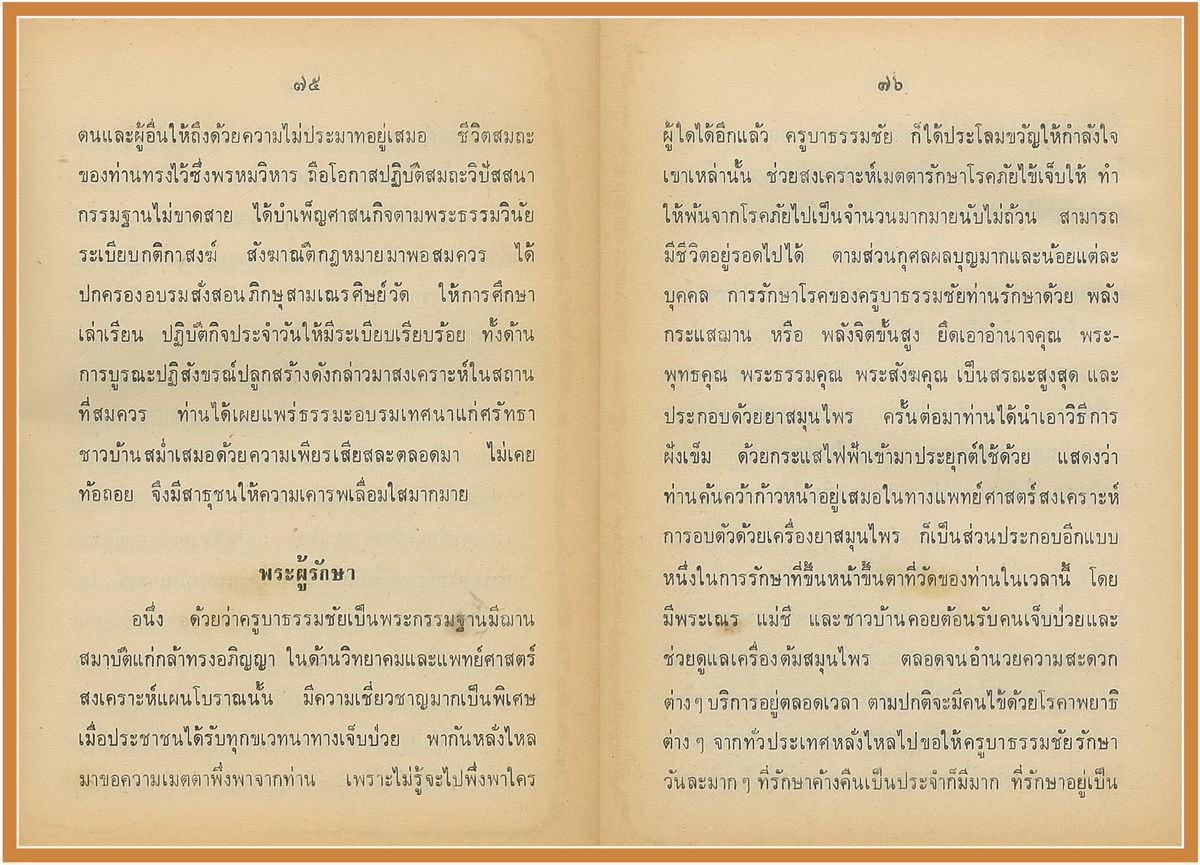 ๗๕
ตนและผู้อื่นให้ถึงด้วยความไม่ประมาทอยู่เสมอ ชีวิตสมถะ
ของท่านทรงไว้ซึ่งพรหมวิหาร ถือโอกาสปฏิบัติสมถะวิปัสสนา
กรรมฐานไม่ขาดสาย ได้บำเพ็ญศาสนกิจตามพระธรรมวินัย
ระเบียบกติกาสงฆ์ สังฆาณัติกฎหมายมาพอสมควร ได้
ปกครองอบรมสั่งสอนภิกษุสามเณรศิษย์วัด ให้การศึกษา
เล่าเรียน ปฏิบัติกิจประจำวันให้มีระเบียบเรียบร้อย ทั้งด้าน
การบูรณะปฏิสังขรณ์ปลูกสร้างดังกล่าวมาสงเคราะห์ในสถาน
ที่สมควร ท่านได้เผยแพร่ธรรมะอบรมเทศนาแก่ศรัทธา
ชาวบ้านสม่ำเสมอด้วยความเพียรเสียสละตลอดมา ไม่เคย
ท้อถอย จึงมีสาธุชนให้ความเคารพเลื่อมใสมากมาย
พระผู้รักษา
อนึ่ง ด้วยว่าครูบาธรรมชัยเป็นพระกรรมฐานมีฌาน
สมาบัติแก่กล้าทรงอภิญญา ในด้านวิทยาคมและแพทย์ศาสตร์
สงเคราะห์แผนโบราณนั้น มีความเชี่ยวชาญมากเป็นพิเศษ
เมื่อประชาชนได้รับทุกขเวทนาทางเจ็บป่วย พากันหลั่งไหล
มาขอความเมตตาพึ่งพาจากท่าน เพราะไม่รู้จะไปพึ่งพาใคร
๗๖
ผู้ใดได้อีกแล้ว ครูบาธรรมชัย ก็ได้ประโลมขวัญให้กำลังใจ
เขาเหล่านั้น ช่วยสงเคราะห์เมตตารักษาโรคภัยไข้เจ็บให้ ทำ
ให้พ้นจากโรคภัยไปเป็นจำนวนมากมายนับไม่ถ้วน สามารถ
มีชีวิตอยู่รอดไปได้ ตามส่วนกุศลผลบุญมากและน้อยแต่ละ
บุคคล การรักษาโรคของครูบาธรรมชัยท่านรักษาด้วย พลัง
กระแสฌาน หรือ พลังจิตขั้นสูง ยึดเอาอำนาจคุณ พระ-
พุทธคุณ พระธรรมคุณ พระสังฆคุณ เป็นสรณะสูงสุด และ
ประกอบด้วยยาสมุนไพร ครั้นต่อมาท่านได้นำเอาวิธีการ
ฝังเข็ม ด้วยกระแสไฟฟ้าเข้ามาประยุกต์ใช้ด้วย แสดงว่า
ท่านค้นคว้าก้าวหน้าอยู่เสมอในทางแพทย์ศาสตร์สงเคราะห์
การอบตัวด้วยเครื่องยาสมุนไพร ก็เป็นส่วนประกอบอีกแบบ
หนึ่งในการรักษาที่ขึ้นหน้าขึ้นตาที่วัดของท่านในเวลานี้ โดย
มีพระเณร แม่ชี และชาวบ้านคอยต้อนรับคนเจ็บป่วยและ
ช่วยดูแลเครื่องต้มสมุนไพร ตลอดจนอำนวยความสะดวก
ต่างๆ บริการอยู่ตลอดเวลา ตามปกติจะมีคนไข้ด้วยโรคาพยาธิ
ต่าง ๆ จากทั่วประเทศหลั่งไหลไปขอให้ครูบาธรรมชัยรักษา
วันละมาก ๆ ที่รักษาค้างคืนเป็นประจำก็มีมาก ที่รักษาอยู่เป็น